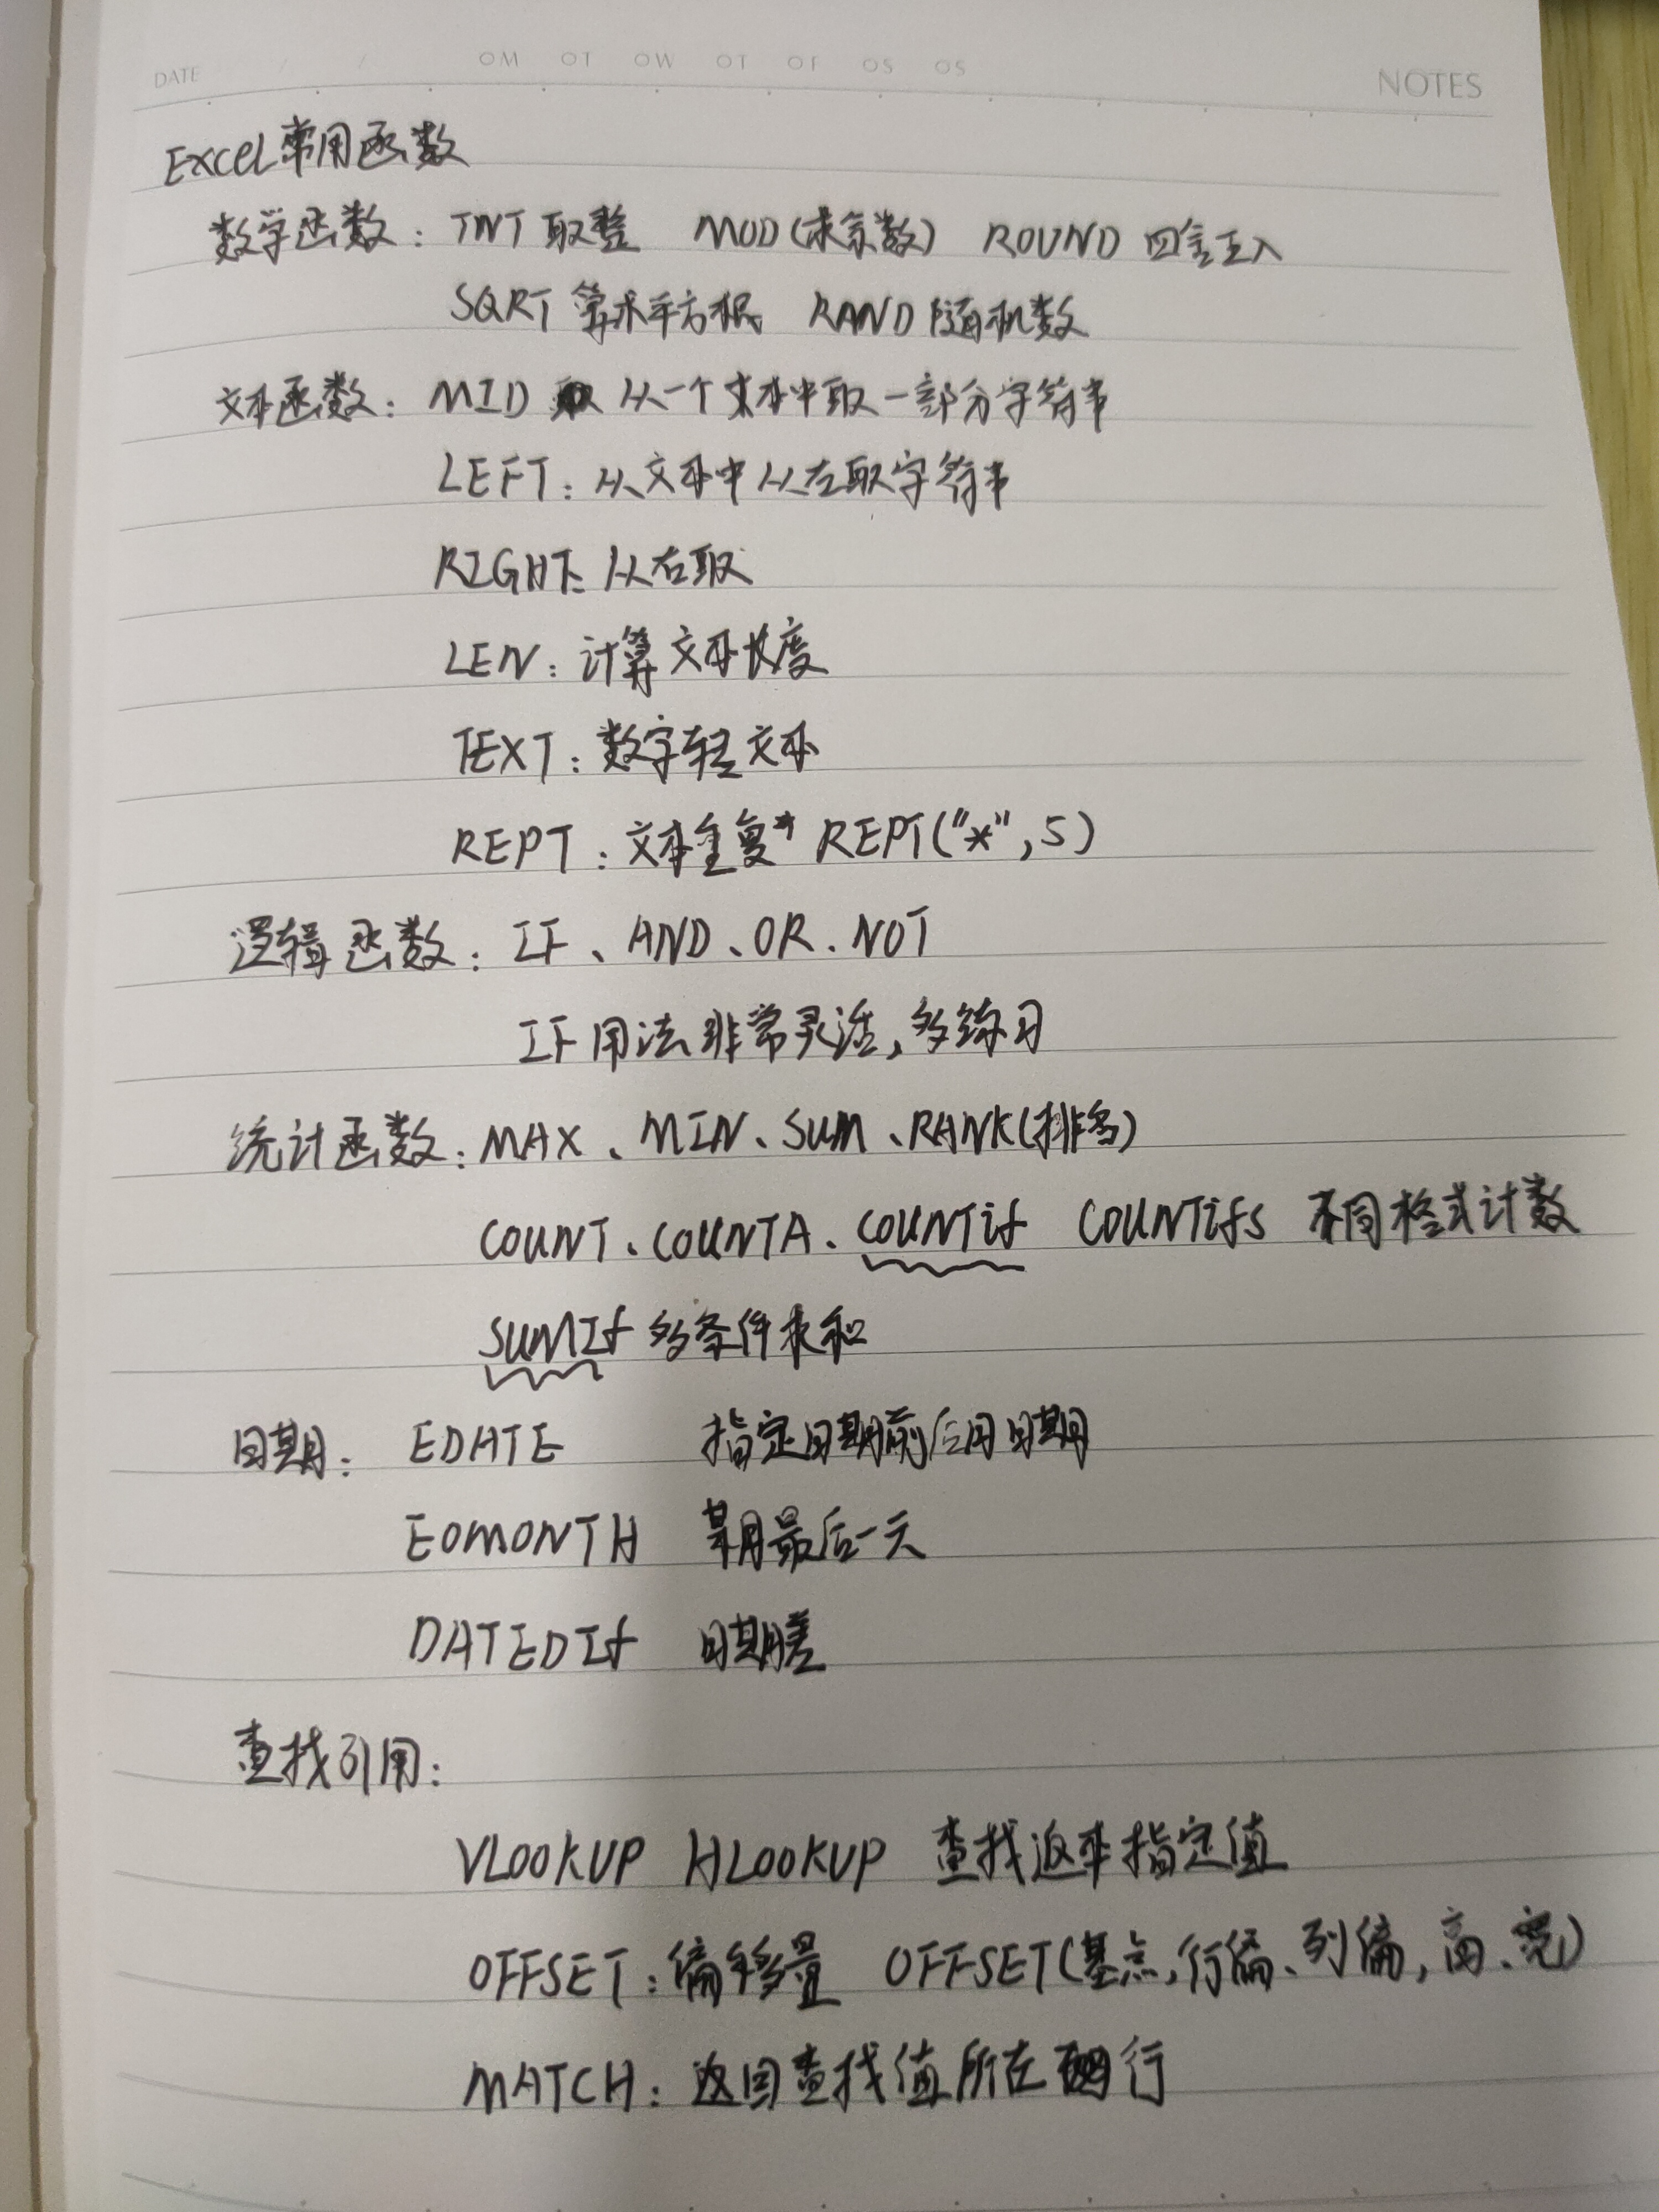 DATE / / OM OT OW OT OF OS OS NOTES
Excel常用函数
数学函数：INT 取整 MOD(求余数) ROUND 四舍五入
SQRT 算术平方根 RAND 随机数
文本函数：MID 从一个文本中取一部分字符串
LEFT：从文本中从左取字符串
RIGHT：从右取
LEN：计算文本长度
TEXT：数字转文本
REPT：文本重复* REPT("*",5)
逻辑函数：IF、AND、OR、NOT
IF用法非常灵活,多练习
统计函数：MAX、MIN、SUM、RANK(排名)
COUNT、COUNTA、COUNTif COUNTifs 不同格式计数
SUMIf 多条件求和
日期：EDATE 指定日期前后月日期
EOMONTH 某月最后一天
DATEDIf 日期差
查找引用：
VLOOKUP HLOOKUP 查找返来指定值
OFFSET：偏移量 OFFSET(基点,行偏、列偏,高、宽)
MATCH：返回查找值所在行